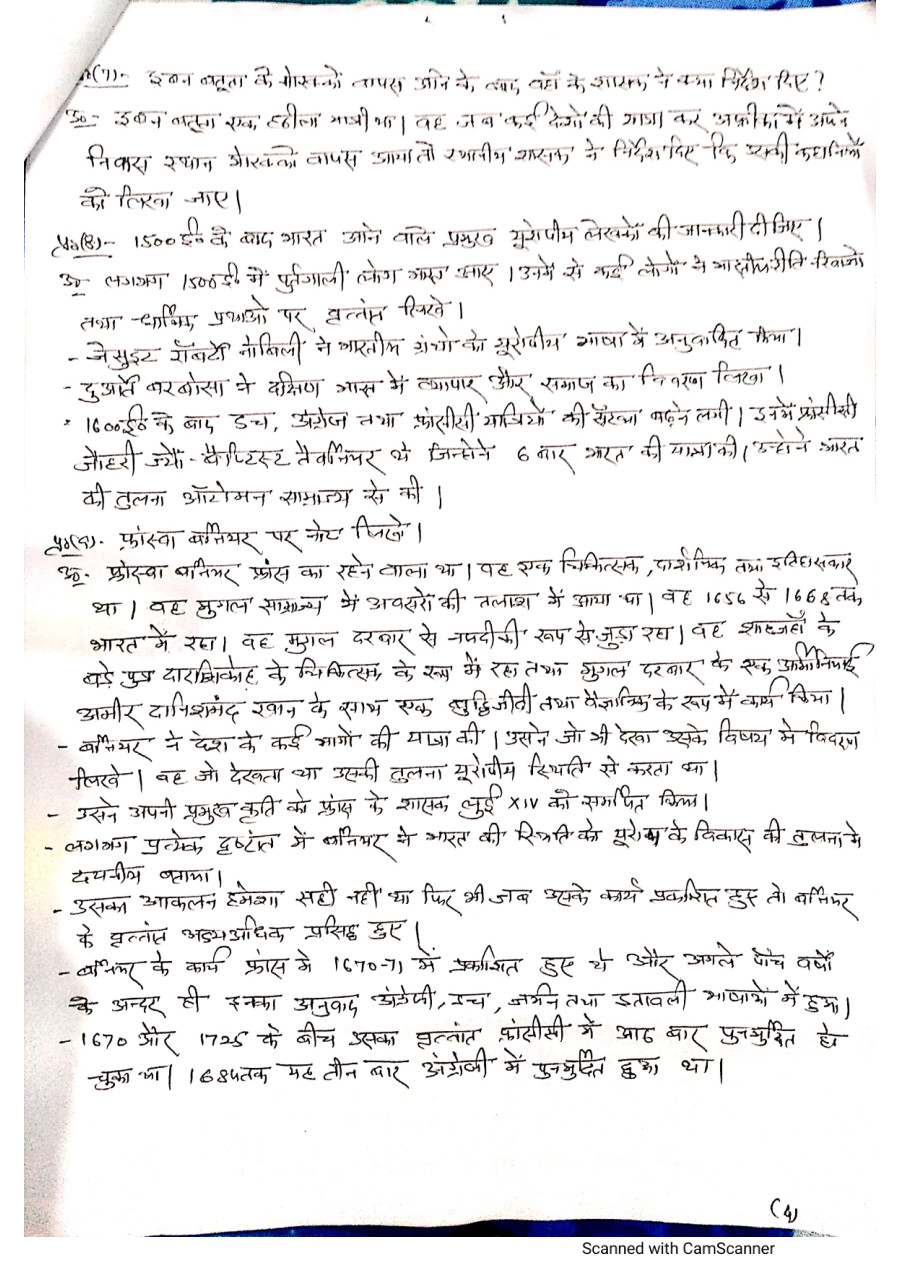 प्र०(7)- इब्न बतूता के मोरक्को वापस आने के बाद वहाँ के शासक ने क्या निर्देश दिए?
उ०- इब्न बतूता एक हठीला यात्री था। वह जब कई देशों की यात्रा कर अफ्रीका में अपने
निवास स्थान मोरक्को वापस आया तो स्थानीय शासक ने निर्देश दिए कि उसकी कहानियों
को लिखा जाए।
प्र०(8)- 1500ई० के बाद भारत आने वाले प्रमुख यूरोपीय लेखकों की जानकारी दीजिए।
उ० लगभग 1500ई० में पुर्तगाली लोग भारत आए। उनमें से कई लोगों ने भारतीय रीति-रिवाजों
तथा धार्मिक प्रथाओं पर वृत्तांत लिखे।
- जेसुइट रॉबर्टो नोबिली ने भारतीय ग्रंथों को यूरोपीय भाषा में अनुवादित किया।
- दुआर्ते बरबोसा ने दक्षिण भारत में व्यापार और समाज का विवरण लिखा।
• 1600ई० के बाद डच, अंग्रेज तथा फ्रांसीसी यात्रियों की संख्या बढ़ने लगी। इनमें फ्रांसीसी
जौहरी ज्यौं-बैप्टिस्ट तैवर्नियर थे जिन्होंने 6 बार भारत की यात्रा की। उन्होंने भारत
की तुलना ऑटोमन साम्राज्य से की।
प्र०(9)- फ्रांस्वा बर्नियर पर नोट लिखो।
उ०- फ्रांस्वा बर्नियर फ्रांस का रहने वाला था। वह एक चिकित्सक, दार्शनिक तथा इतिहासकार
था। वह मुगल साम्राज्य में अवसरों की तलाश में आया था। वह 1656 से 1668 तक
भारत में रहा। वह मुगल दरबार से नजदीकी रूप से जुड़ा रहा। वह शाहजहाँ के
बड़े पुत्र दाराशिकोह के चिकित्सक के रूप में रहा तथा मुगल दरबार के एक आर्मीनियाई
अमीर दानिशमंद खान के साथ एक बुद्धिजीवी तथा वैज्ञानिक के रूप में कार्य किया।
- बर्नियर ने देश के कई भागों की यात्रा की। उसने जो भी देखा उसके विषय में विवरण
लिखे। वह जो देखता था उसकी तुलना यूरोपीय स्थिति से करता था।
- उसने अपनी प्रमुख कृति को फ्रांस के शासक लुई XIV को समर्पित किया।
- लगभग प्रत्येक दृष्टांत में बर्नियर ने भारत की स्थिति को यूरोप के विकास की तुलना में
दयनीय बताया।
- उसका आकलन हमेशा सही नहीं था फिर भी जब उसके कार्य प्रकाशित हुए तो बर्नियर
के वृत्तांत अत्यधिक प्रसिद्ध हुए।
- बर्नियर के कार्य फ्रांस में 1670-71 में प्रकाशित हुए थे और अगले पाँच वर्षों
के अन्दर ही इनका अनुवाद अंग्रेजी, डच, जर्मन तथा इतावली भाषाओं में हुआ।
- 1670 और 1725 के बीच उसका वृत्तांत फ्रांसीसी में आठ बार पुनर्मुद्रित हो
चुका था। 1684 तक यह तीन बार अंग्रेजी में पुनर्मुद्रित हुआ था।
(4)
Scanned with CamScanner